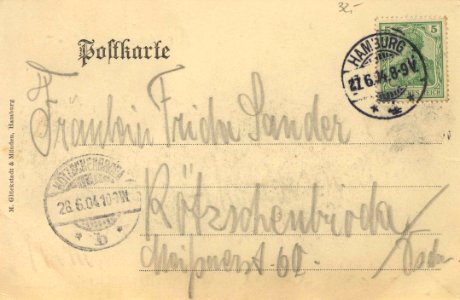 32.-
Postkarte
5
HAMBURG
27.6.04.8-9V.
Fräulein Frida Sander
KÖTZSCHENBRODA
28.6.04.10-11V.
b
Kötzschenbroda
Meißnerst. 62
M. Glückstadt & Münden, Hamburg